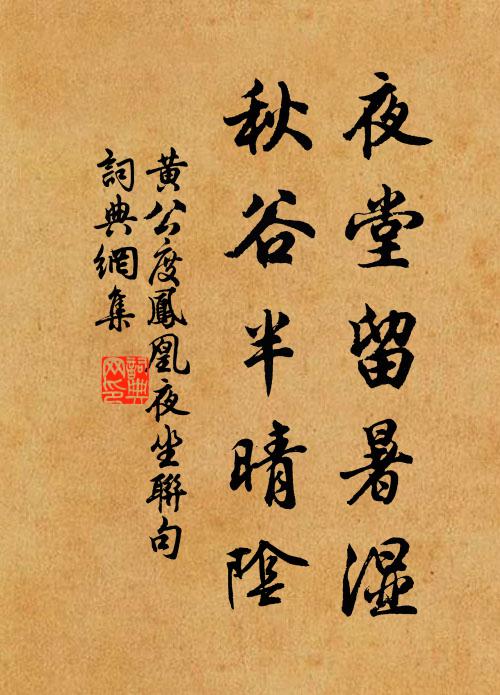 夜堂留暑湿
秋谷半晴陰
黄公度鳳凰夜坐聯句
詞典網集
詞典网印